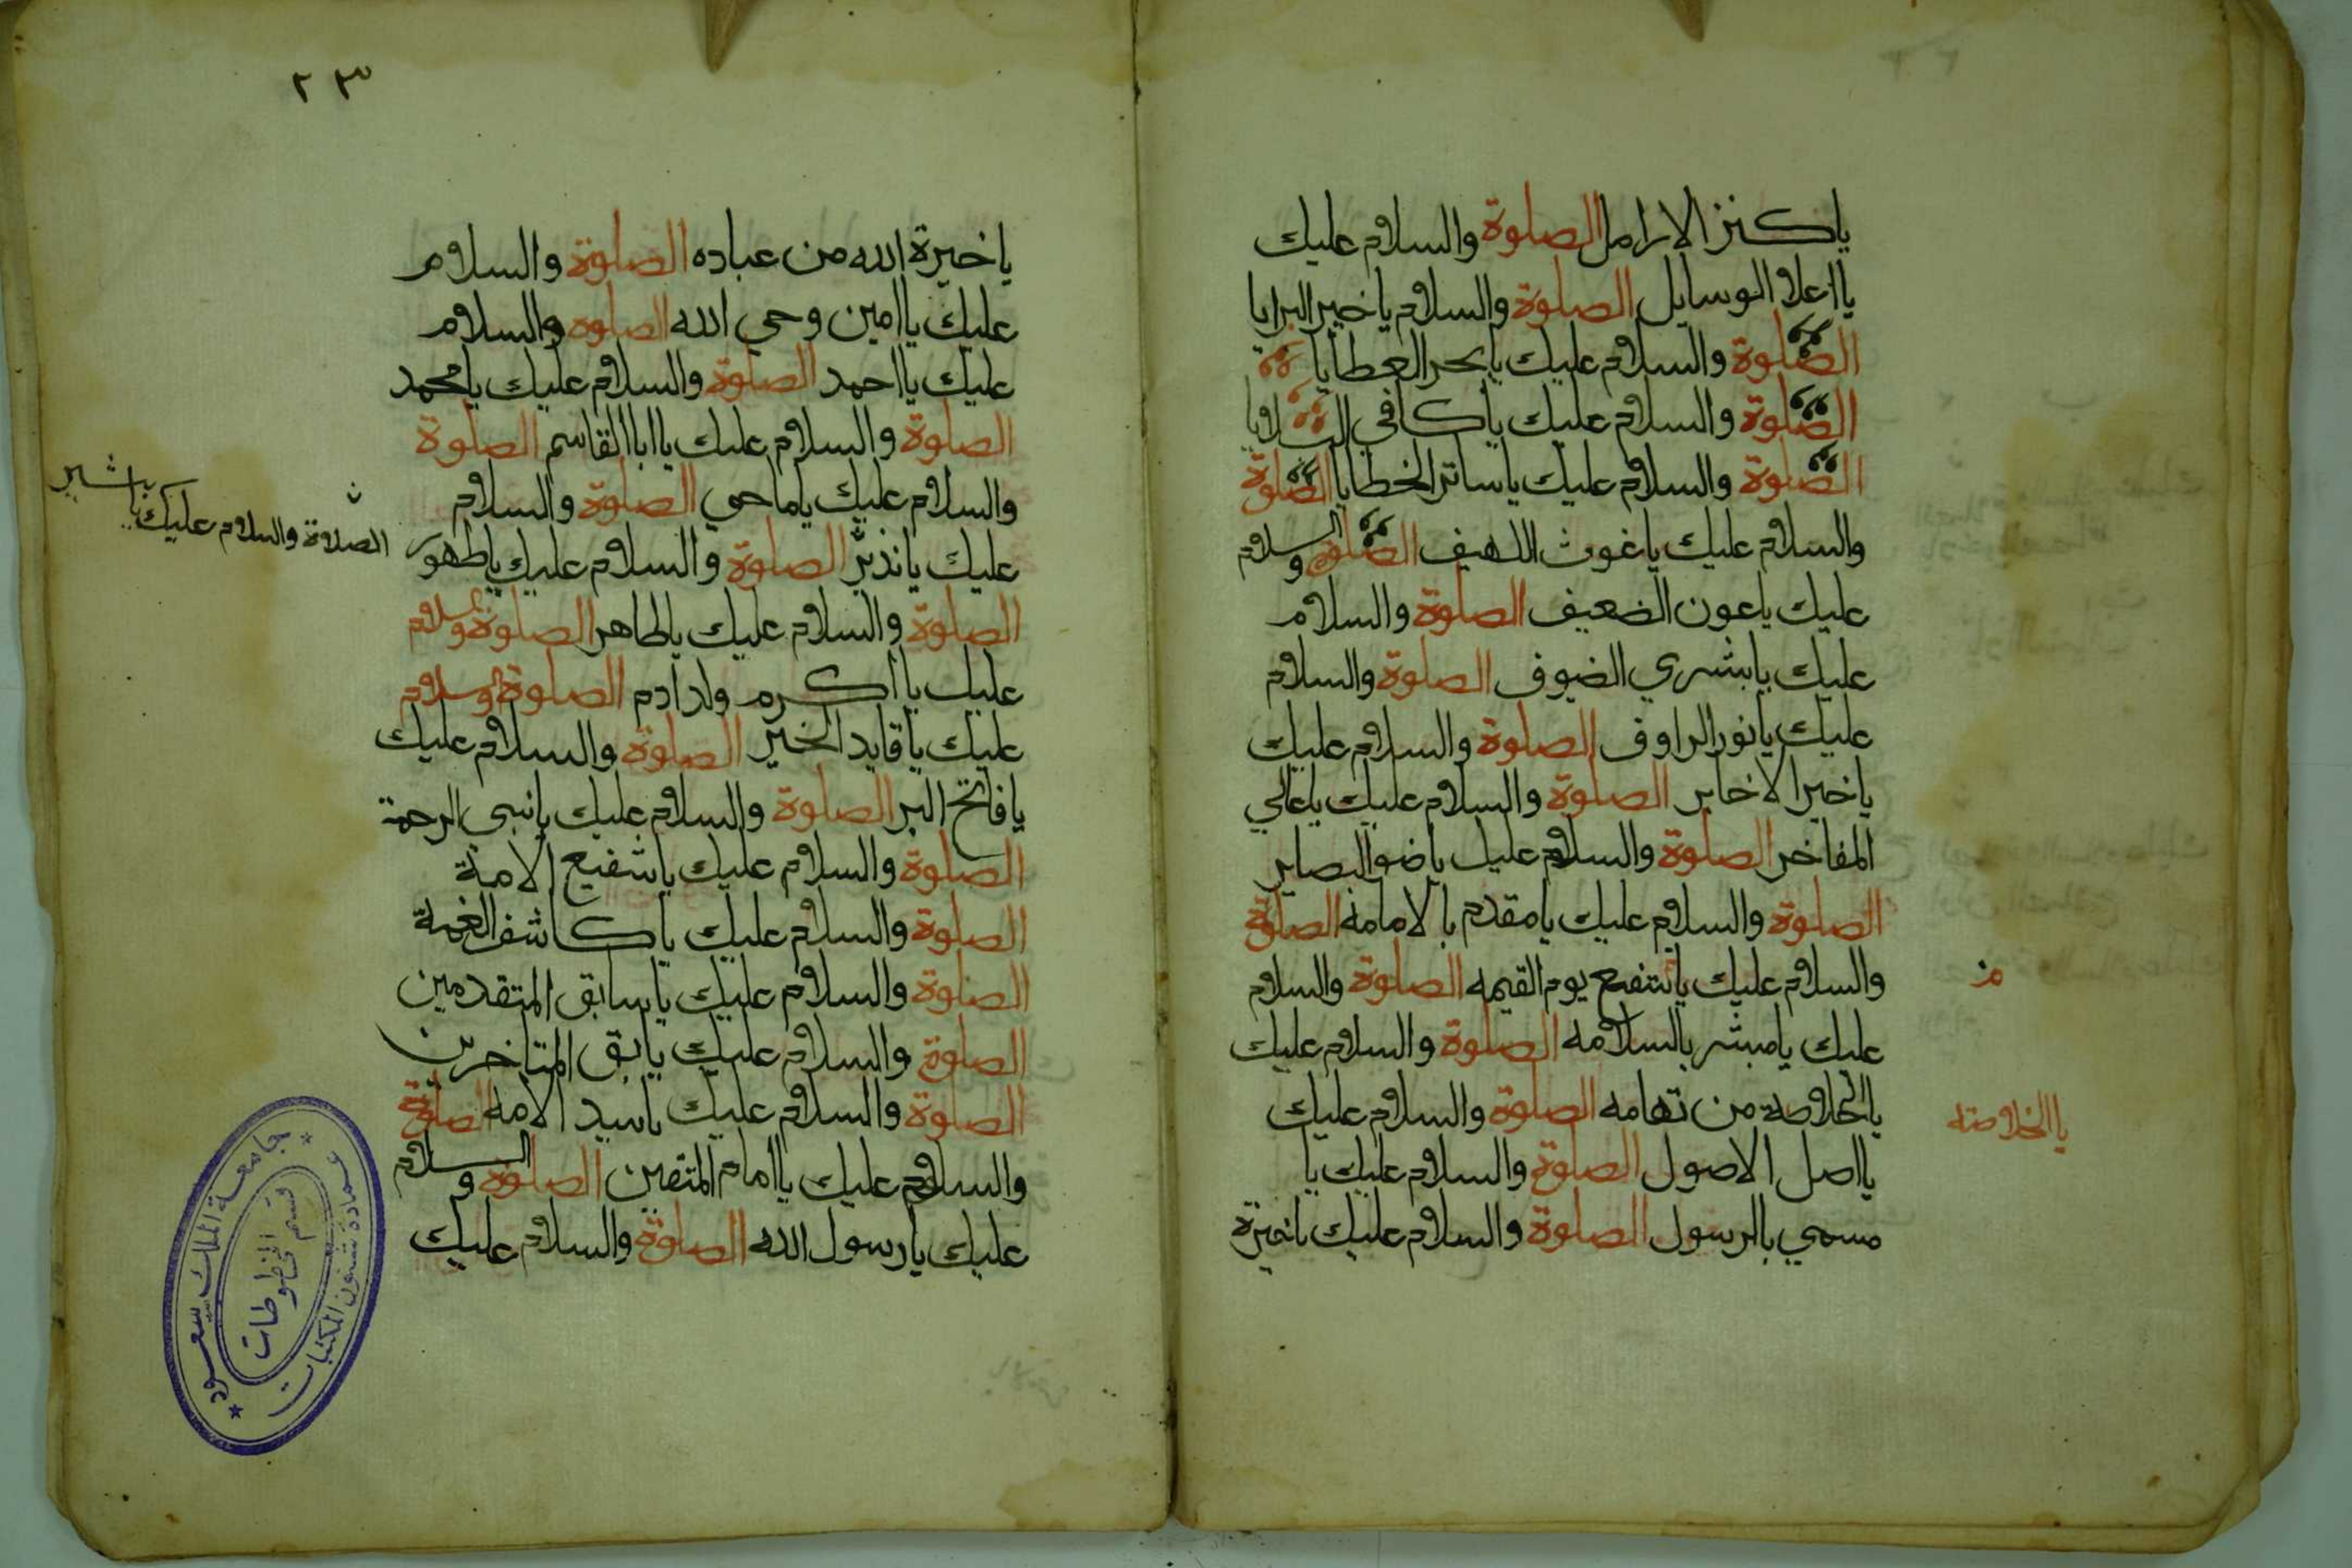 ياكنز الارامل الصلوة والسلام عليك
يا اعلا الوسايل الصلوة والسلام ياخير البرايا
الصلوة والسلام عليك يابحر العطايا
الصلوة والسلام عليك ياكافي البلايا
الصلوة والسلام عليك ياساتر الخطايا الصلوة
والسلام عليك ياغوث اللهيف الصلوة والسلام
عليك ياعون الضعيف الصلوة والسلام
عليك يابشري الضيوف الصلوة والسلام
عليك يانور الراوف الصلوة والسلام عليك
ياخير الاخاير الصلوة والسلام عليك ياعالي
المفاخر الصلوة والسلام عليك ياضوا البصاير
الصلوة والسلام عليك يامقدم بالامامه الصلوة
والسلام عليك ياشفيع يوم القيمه الصلوة والسلام
عليك يامبشر بالسلامه الصلوة والسلام عليك
يا الخلاوصه من تهامه الصلوة والسلام عليك
يا الخلاصه
يااصل الاصول الصلوة والسلام عليك يا
مسمي بالرسول الصلوة والسلام عليك ياخيرة
٢٣
ياخيرة الله من عباده الصلوة والسلام
عليك ياامين وحي الله الصلوه والسلام
عليك يااحمد الصلوة والسلام عليك يامحمد
الصلوة والسلام عليك ياابا القاسم الصلوة
والسلام عليك ياماحي الصلوة والسلام
عليك يانذير الصلوة والسلام عليك ياطهور
الصلاة والسلام عليك يا بشير
الصلوة والسلام عليك ياطاهر الصلوة والسلام
عليك يااكرم ولد ادم الصلوة والسلام
عليك ياقايد الخير الصلوة والسلام عليك
يافاتح البر الصلوة والسلام عليك يانبي الرحمة
الصلوة والسلام عليك ياشفيع الامة
الصلوة والسلام عليك ياكاشف الغمة
الصلوة والسلام عليك ياسابق المتقدمين
الصلوة والسلام عليك يابق المتاخرين
الصلوة والسلام عليك ياسيد الامه الصلوة
والسلام عليك ياامام المتقين الصلوة والسلام
عليك يارسول الله الصلوة والسلام عليك
جامعة الملك سعود
عمادة شئون المكتبات
قسم المخطوطات